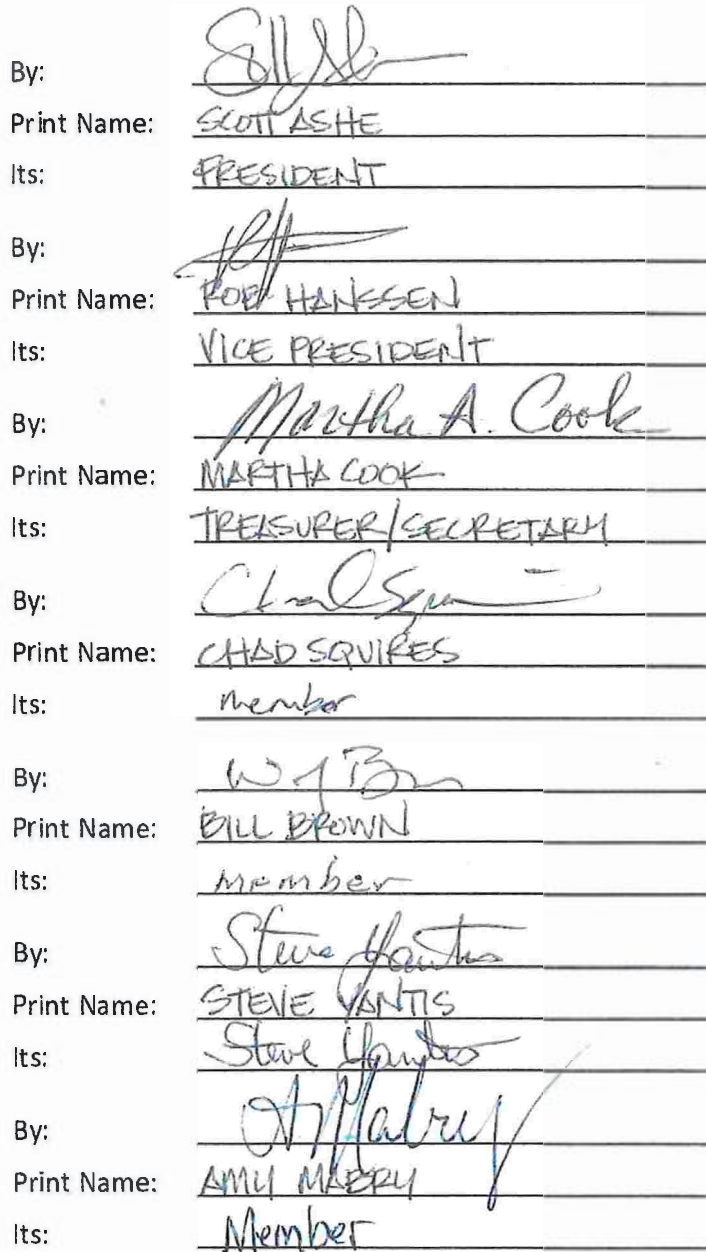 By:
Print Name: SCOTT ASHE
Its: PRESIDENT
By:
Print Name: ROB HANSSEN
Its: VICE PRESIDENT
By: Martha A. Cook
Print Name: MARTHA COOK
Its: TREASURER/SECRETARY
By: Chad Squires
Print Name: CHAD SQUIRES
Its: member
By:
Print Name: BILL BROWN
Its: member
By: Steve Yantis
Print Name: STEVE YANTIS
Its: Steve Yantis
By: A Mabry
Print Name: AMY MABRY
Its: Member